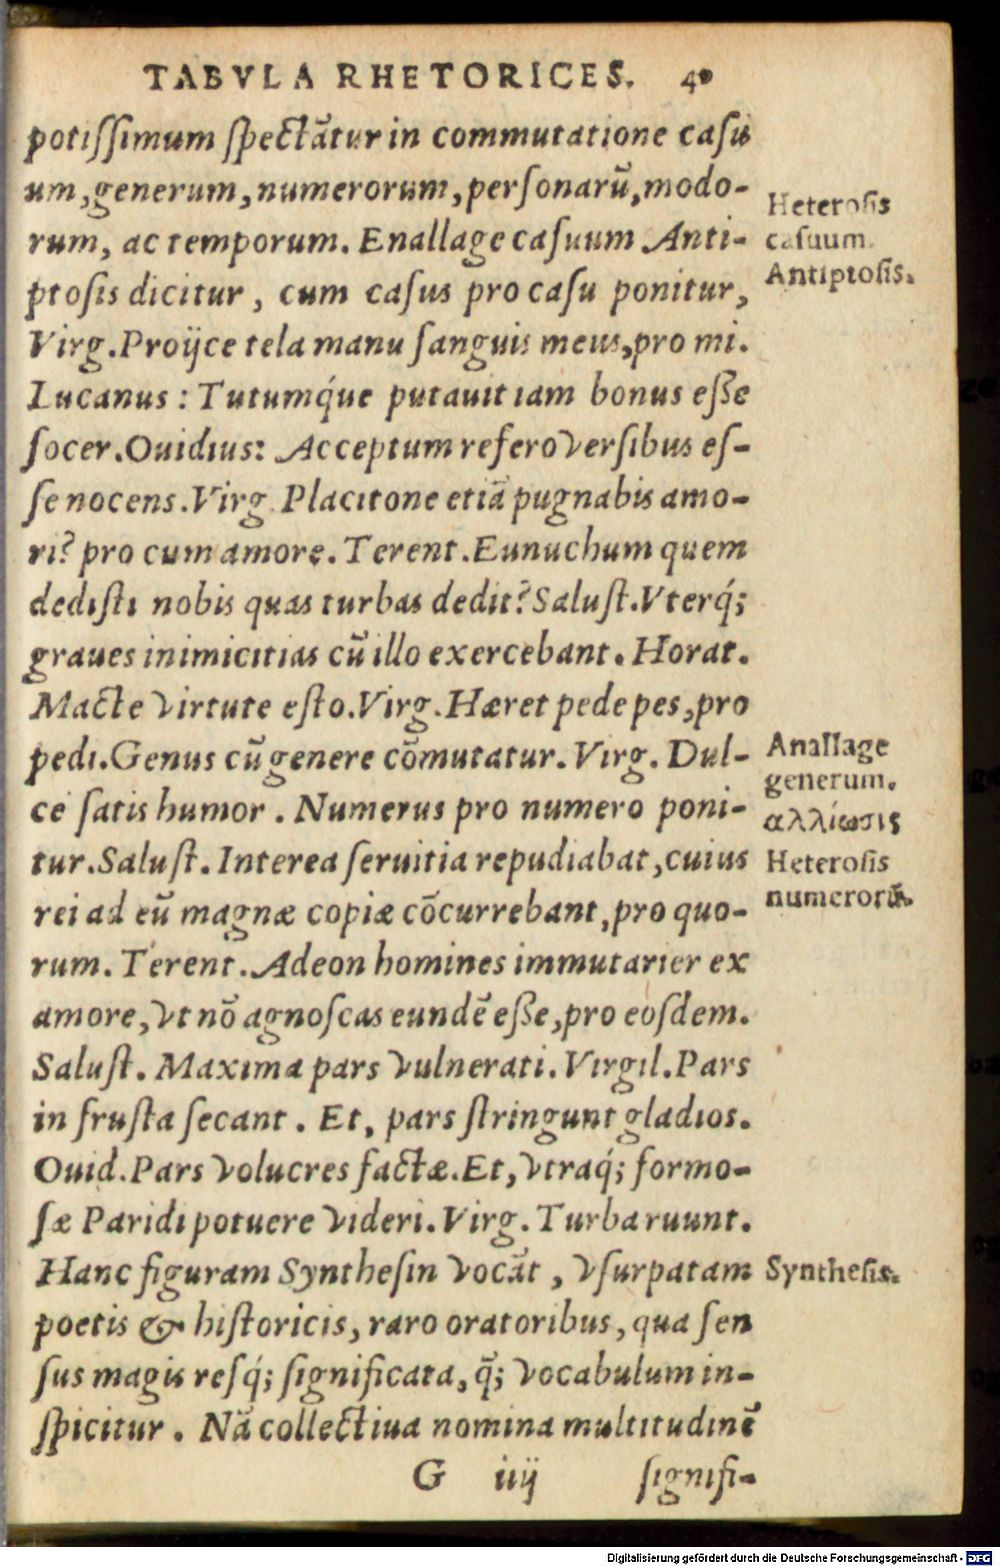 TABVLA RHETORICES. 40
potissimum spectātur in commutatione casu
um, generum, numerorum, personarū, modo-
rum, ac temporum. Enallage casuum Anti-
ptosis dicitur, cum casus pro casu ponitur,
Virg. Proijce tela manu sanguis meus, pro mi.
Lucanus: Tutumq́ue putauit iam bonus eße
socer. Ouidius: Acceptum refero versibus es-
se nocens. Virg. Placitone etiā pugnabis amo-
ri? pro cum amore. Terent. Eunuchum quem
dedisti nobis quas turbas dedit? Salust. Vterq́;
graues inimicitias cū illo exercebant. Horat.
Macte virtute esto. Virg. Hæret pede pes, pro
pedi. Genus cū genere cōmutatur. Virg. Dul-
ce satis humor. Numerus pro numero poni-
tur. Salust. Interea seruitia repudiabat, cuius
rei ad eū magnæ copiæ cōcurrebant, pro quo-
rum. Terent. Adeon homines immutarier ex
amore, vt nō agnoscas eundē eße, pro eosdem.
Salust. Maxima pars vulnerati. Virgil. Pars
in frusta secant. Et, pars stringunt gladios.
Ouid. Pars volucres factæ. Et, vtraq́; formo-
sæ Paridi potuere videri. Virg. Turba ruunt.
Hanc figuram Synthesin vocāt, vsurpatam
poetis & historicis, raro oratoribus, qua sen
sus magis resq́; significata, q̄; vocabulum in-
spicitur. Nā collectiua nomina multitudinē
G iiij signifi-
Heterosis
casuum.
Antiptosis.
Anallage
generum.
αλλίωσις
Heterosis
numerorū.
Synthesis.
Digitalisierung gefördert durch die Deutsche Forschungsgemeinschaft - DFG